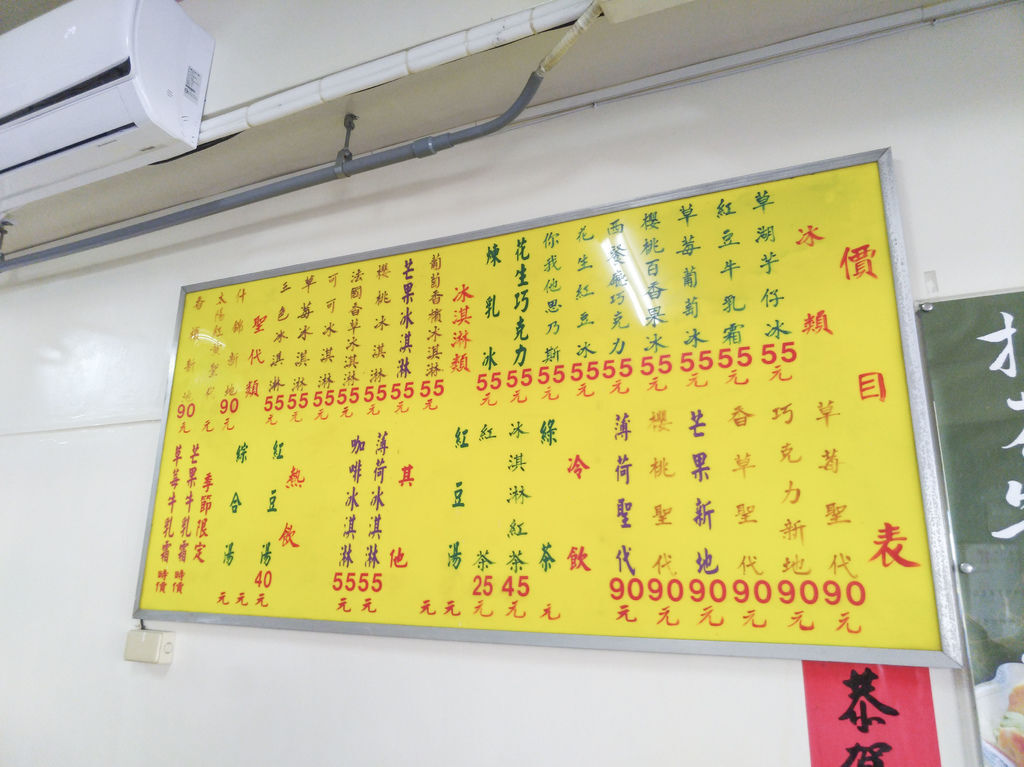 價目表
冰類
草湖芋仔冰 55元
紅豆牛乳霜 55元
草莓葡萄冰 55元
櫻桃百香果冰 55元
西餐廳巧克力 55元
花生紅豆冰 55元
你我他思乃斯 55元
花生巧克力 55元
煉乳冰 55元
冰淇淋類
葡萄香檳冰淇淋 55元
芒果冰淇淋 55元
櫻桃冰淇淋 55元
法國香草冰淇淋 55元
可可冰淇淋 55元
草莓冰淇淋 55元
三色冰淇淋 55元
聖代類
什錦新地 90元
太陽紅 聖代 元
香 新地 90元
草莓聖代 90元
巧克力新地 90元
香草聖代 90元
芒果新地 90元
櫻桃聖代 90元
薄荷聖代 90元
冷飲
綠茶 元
冰淇淋紅茶 45元
紅茶 25元
紅豆湯 元
其他
薄荷冰淇淋 55元
咖啡冰淇淋 55元
熱飲
紅豆湯 40元
綜合湯 元
季節限定
芒果牛乳霜 時價
草莓牛乳霜 時價
恭賀